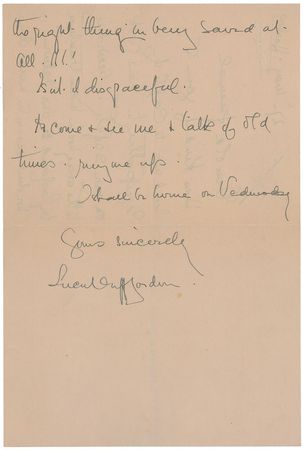 the right thing in being saved at
all!!!
Isn't it disgraceful.
Do come & see me & talk of old
times. ring me up.
I shall be home on Wednesday
Yours sincerely
Lucy Duff Gordon.